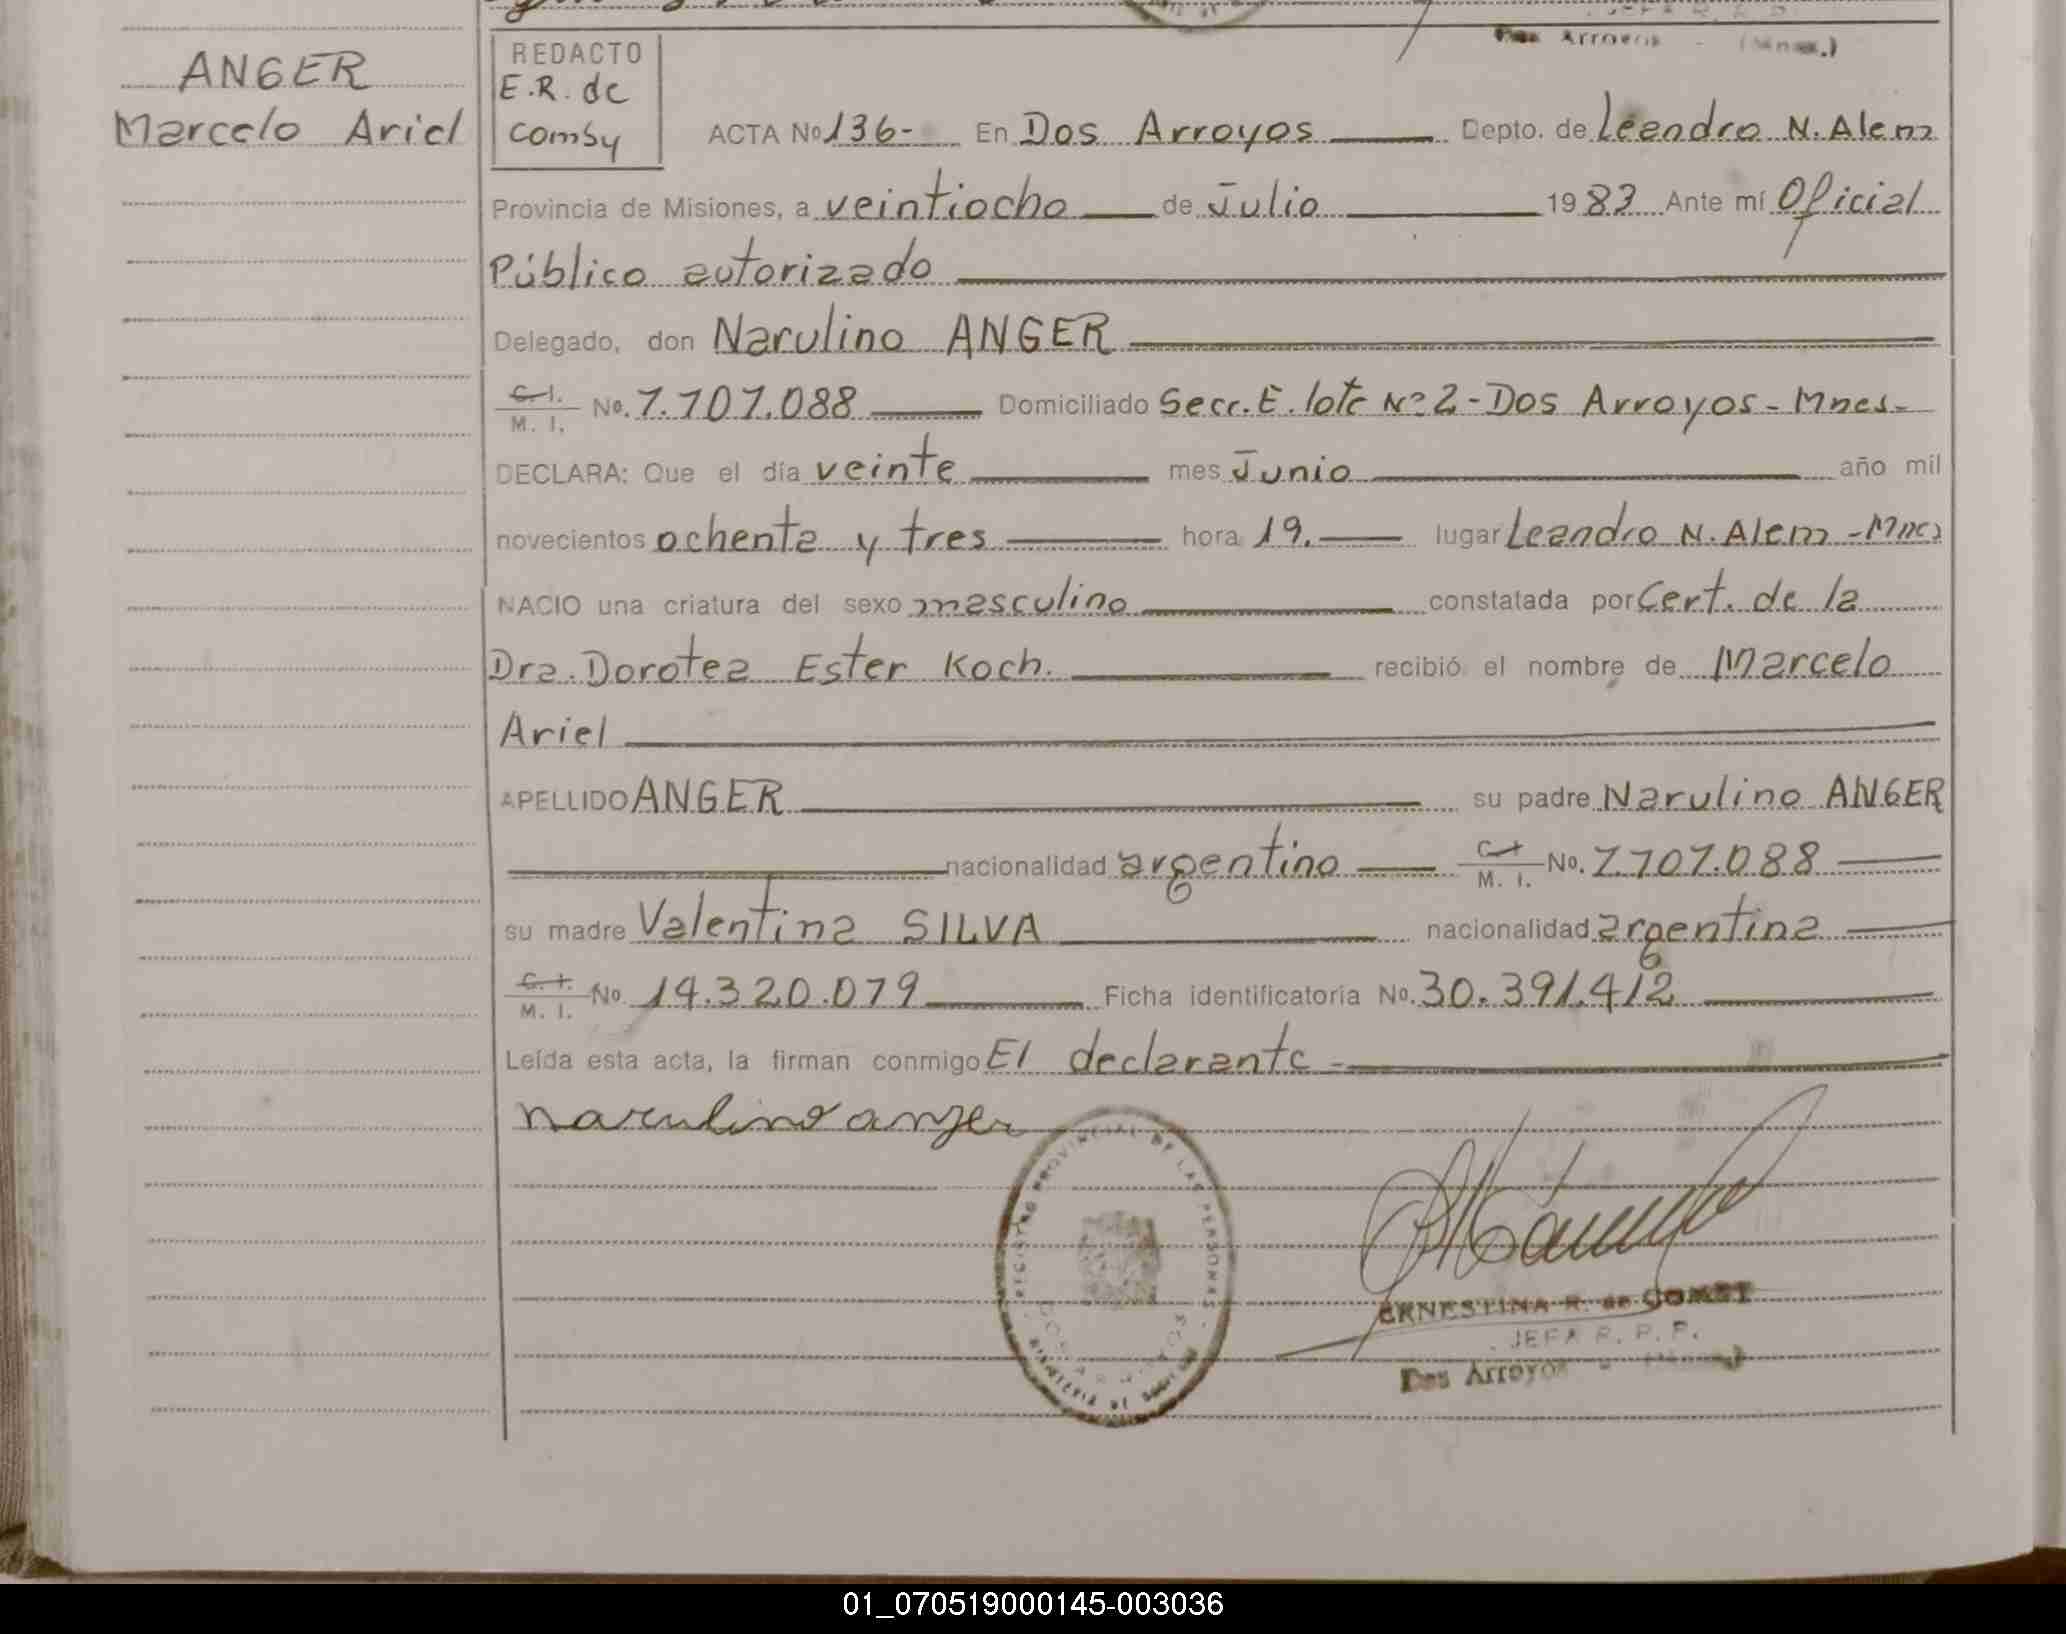 Dos Arroyos - (Mnes.)
ANGER
Marcelo Ariel
REDACTO
E.R. de
Comby
ACTA No 136- En Dos Arroyos Depto. de Leandro N. Alem
Provincia de Misiones, a veintiocho de Julio 1983 Ante mí Oficial
Público autorizado
Delegado, don Narulino ANGER
C. I. / M. I. No. 7.707.088 Domiciliado Secc. E. lote Nº 2 - Dos Arroyos - Mnes-
DECLARA: Que el día veinte mes Junio año mil
novecientos ochenta y tres hora 19. lugar Leandro N. Alem - Mnes
NACIO una criatura del sexo masculino constatada por Cert. de la
Dra. Dorotea Ester Koch. recibió el nombre de Marcelo
Ariel
APELLIDO ANGER su padre Narulino ANGER
nacionalidad argentino C. I. / M. I. No. 7.707.088
su madre Valentina SILVA nacionalidad argentina
C. I. / M. I. No 14.320.079 Ficha identificatoria No. 30.391.412
Leída esta acta, la firman conmigo El declarante -
Narulino anger
REGISTRO PROVINCIAL DE LAS PERSONAS
DOS ARROYOS
ERNESTINA R. de COMBY
JEFA R. P. P.
Dos Arroyos - (Mnes.)
01_070519000145-003036